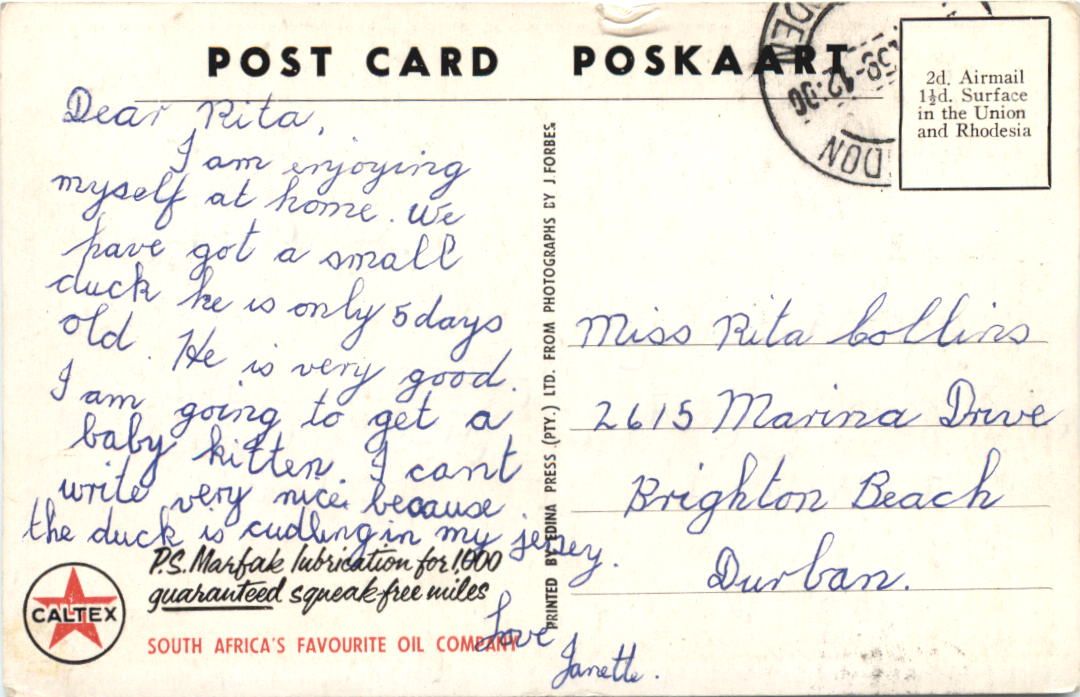 POST CARD POSKAART
2d. Airmail
1½d. Surface
in the Union
and Rhodesia
DEN
12·00
DON
Dear Rita,
I am enjoying
myself at home. We
have got a small
duck he is only 5 days
old. He is very good.
I am going to get a
baby kitten. I cant
write very nice because
the duck is cudling in my jersey.
Love
Janette.
P.S. Marfak lubrication for 1,000
guaranteed squeak-free miles
CALTEX
SOUTH AFRICA'S FAVOURITE OIL COMPANY
PRINTED BY EDINA PRESS (PTY.) LTD. FROM PHOTOGRAPHS BY J. FORBES
Miss Rita Collins
2615 Marina Drive
Brighton Beach
Durban.